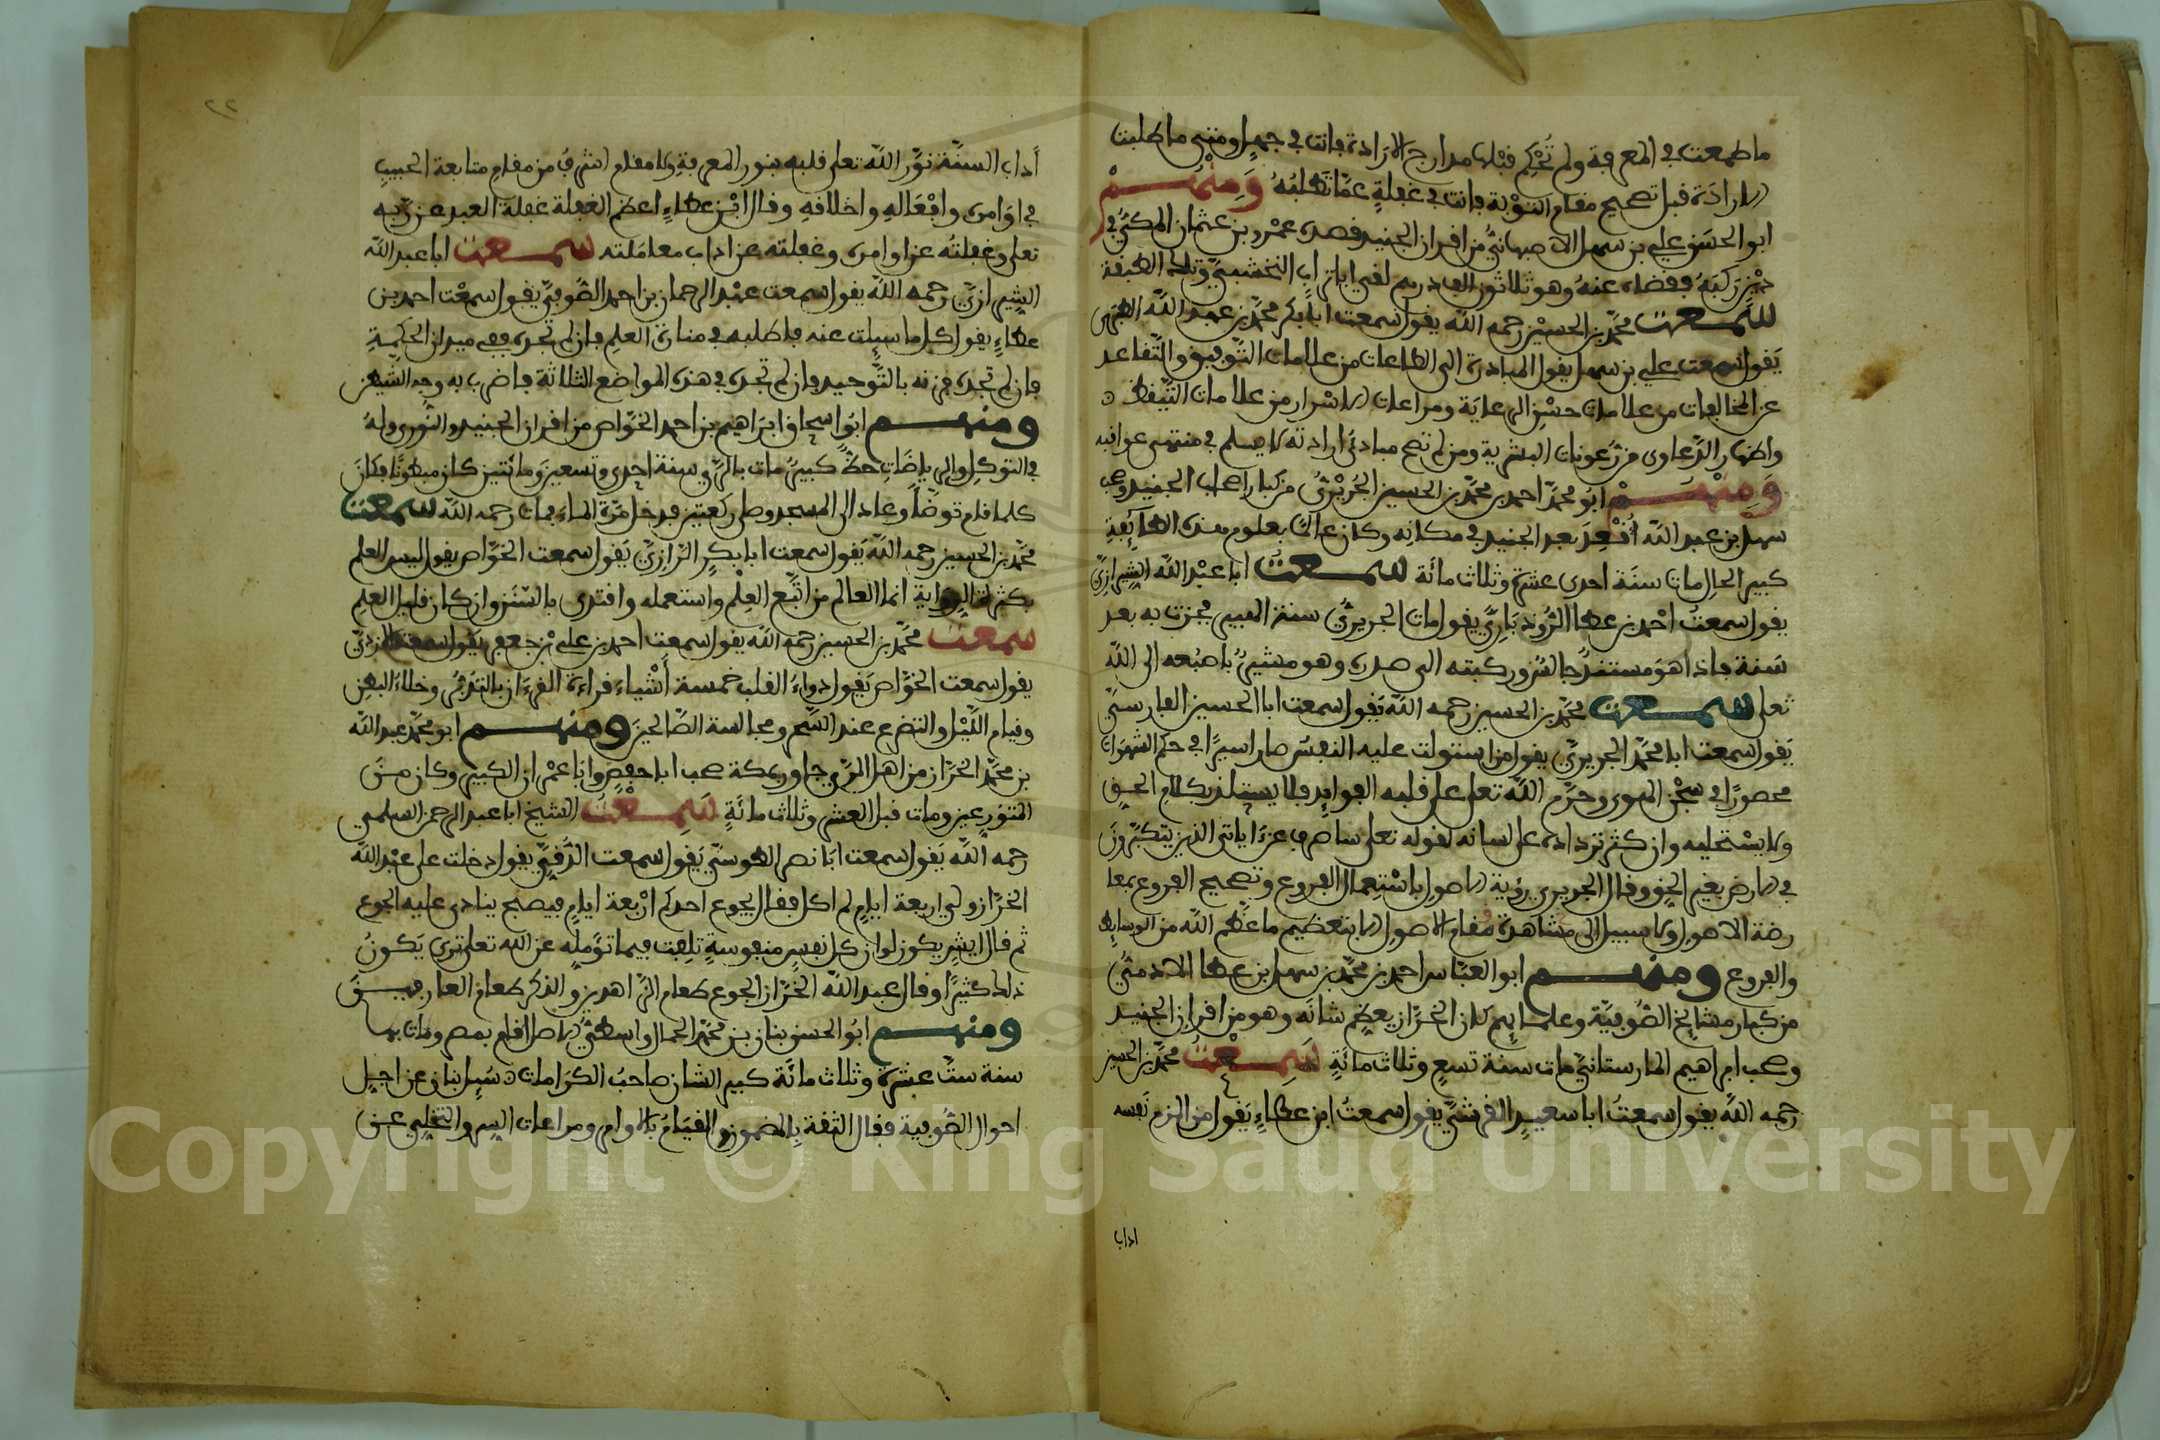 ما طمعت في المعرفة ولم تُحكِم قبلها مدارج الارادة فانت في جهل ومتى ما طلبت
الارادَة قبل تصحيح مقام التوبة فانت في غفلةٍ عمّا تطلبُهُ وَمِنْهُــمْ
ابو الحسَن علي بن سهل الاصبهانيُّ من اقران الجنيد قصده عمْرو بن عثمان المكيّ في
دَيْن رَكبَهُ فقضاه عنهُ وهو ثلاثون الف درهم لقي ابا تراب النخشبيّ وتلك الطبقة
سمـعت محمّد بن الحسيْن رحمه الله يقول سمعت ابا بكر محمّد بن عبد الله الطبري
يَقول سمعت علي بن سهل يقول المبادرة الى الطاعات من علامات التّوفيق والتّقاعد
عن المخالفات من علامات حسْن الرعاية ومراعات الاسْرار من علامات التّيقظ
واظهار الدّعاوى من رُعونات البشرية ومن لم تصح مبادئ ارادته لا يسلم في منتهى عواقبه
وَمِنْهُـمْ ابو محمّد احمد بن محمّد بن الحسين الجُريْريُّ من كبار اصحاب الجنيد وصحب
سهل بن عبد الله أُقْعِدَ بعد الجنيد في مكانه وكان عالمًا بعلوم هذه الطآئفة
كبير الحال مات سنَة احدى عشرة وثلاث مائة سمـعت ابا عبْد الله الشيرازيّ
يقول سمعتُ احْمد بن عطا الرُّوذبَاريّ يقول مات الجريريُّ سنة الهبير فجزت به بعد
سَنة فاذا هوَ مستنِدٌ جالسٌ وركبته الى صدره وهو مشيرٌ باصبُعه الى الله
تعلى سمـعت محمّد بن الحسين رحمه الله يَقول سمعت ابا الحسين الفارسيّ
يَقول سمعت ابا محمّد الجريريّ يقول من استولت عليه النفسُ صار اسيرًا في حكم الشهوات
محصورًا في سجْن الهوى وحرّم الله تعلى على قلبه الفوايد فلا يستلذ بكلام الحق
ولا يسْتحليه وان كثر ترداده على لسانه لقوله تعلى ساصرف عن ءاياتي الذين يتكبّرون
في الارض بغير الحق وقال الجريري رؤية الاصول باسْتعمال الفروع وتصحيح الفروع بمعا
رضة الاصول ولا سبيل الى مشاهدة مقام الاصول الا بتعظيم ما عظّم الله من الوسايط
والفروع ومنهـم ابو العبّاس احمد بن محمّد بن سهل بن عطا الادميُّ
من كبار مشايخ الصّوفيّة وعلمايهم كان الخرّاز يعظّم شانَه وهو من اقران الجنيد
وصحب ابراهيم المارستانيّ مات سنة تسعٍ وثلاث مائةٍ سَمِـعْتُ محمّد بن الحسين
رحمه اللهُ يقول سمعتُ ابا سعيدٍ القرشيّ يقول سمعتُ ابن عطاءٍ يَقول من الزم نَفسه
اداب
٢٢
أداب السنّة نوّر الله تعلى قلبه بنور المعرفة ولا مقام اشرفُ من مقام متابعة الحبيب
في اوَامره وافْعَاله واخلاقه وقال ابْن عطاءٍ اعظم الغفلة غفلة العبد عن ربّه
تعلى وغفلتُه عن اوامره وغفلته عن اداب معاملته سمـعت ابا عبد الله
الشيرازيّ رحمه الله يقول سمعت عبْد الرحمان بن احمد الصّوفيّ يقول سمعْت احمد بن
عطاءٍ يقول كل ما سيلت عنه فاطلبه في منازة العلم فان لم تجده ففي ميدان الحكمةِ
فان لم تجده فزنه بالتّوحيد فان لم تجده في هذه المواضع الثلاثة فاضرب به وجه الشيطن
ومنهـم ابوُا سحاق ابرَاهيم بن احمد الخوّاص من اقران الجنيد والنّوري ولهُ
في التوكل والرياضَات حظٌّ كبيرٌ مات بالرّي سنة احدى وتسعين ومائتين كان مبطونًا فكانَ
كلما قام توضّأ وعاد الى المسجد وصلى ركعتين فدخل مرّة الماء فمات رحمه الله سمعت
محمّد بن الحسين رحمه الله يَقول سمعت ابا بكرٍ الرّازيّ يَقول سمعت الخوّاص يقول ليس العلم
بكثرة الرواية انما العالم من اتّبع العِلْم واستعمله واقتدى بالسّنَن وان كان قليل العلم
سمعت محمّد بن الحسين رحمه الله يقول سمعت احمد بن علي بْن جعفر يَقول سمعت الازديّ
يقول سمعت الخوّاص يَقول دواءُ القلب خمسة أشْياء قراءة القرءان بالتدبّر وخلاء البطن
وقيام اللّيْل والتضرع عند السّحر ومجالسة الصّالحين ومنهـم ابو محمّد عبد الله
بن محمّد الخرّاز من اهل الرّي جاور بمكة صحب ابا حفصٍ وابا عمْران الكبير وكان منَ
المتورّعين ومات قبل العشر وثلاث مائةٍ سَمِـعْتُ الشيخ ابا عبد الرحمن السلمي
رحمه الله يَقول سمعت ابَا نصر الطوسيّ يَقول سمعت الدُّقّيّ يقول دخلت على عبْد الله
الخرّاز ولي اربعة ايام لم اكل فقال يجوع احدكم ارْبعة ايام فيصبح ينادي عليه الجوع
ثم قال ايش يكون لو ان كل نفس منفوسةٍ تلِفت فيما تؤمّله عن الله تعلى ترى يَكونُ
ذلك كثيرًا وقال عبد الله الخرّاز الجوع طعام الزّاهدين والذكر طعام العارفينَ
ومنهـم ابُو الحسن بنان بن محمّد الحمال واسطيُّ الاصل اقام بمصر ومات بها
سنة ستّ عشرة وثلاث مائة كبير الشان صاحبُ الكرَامات سُيل بنان عن اجل
احوال الصّوفية فقال الثقة بالمضمون والقيَامُ بالاوامر ومراعات السر والتخلي عن
Copyright © King Saud University